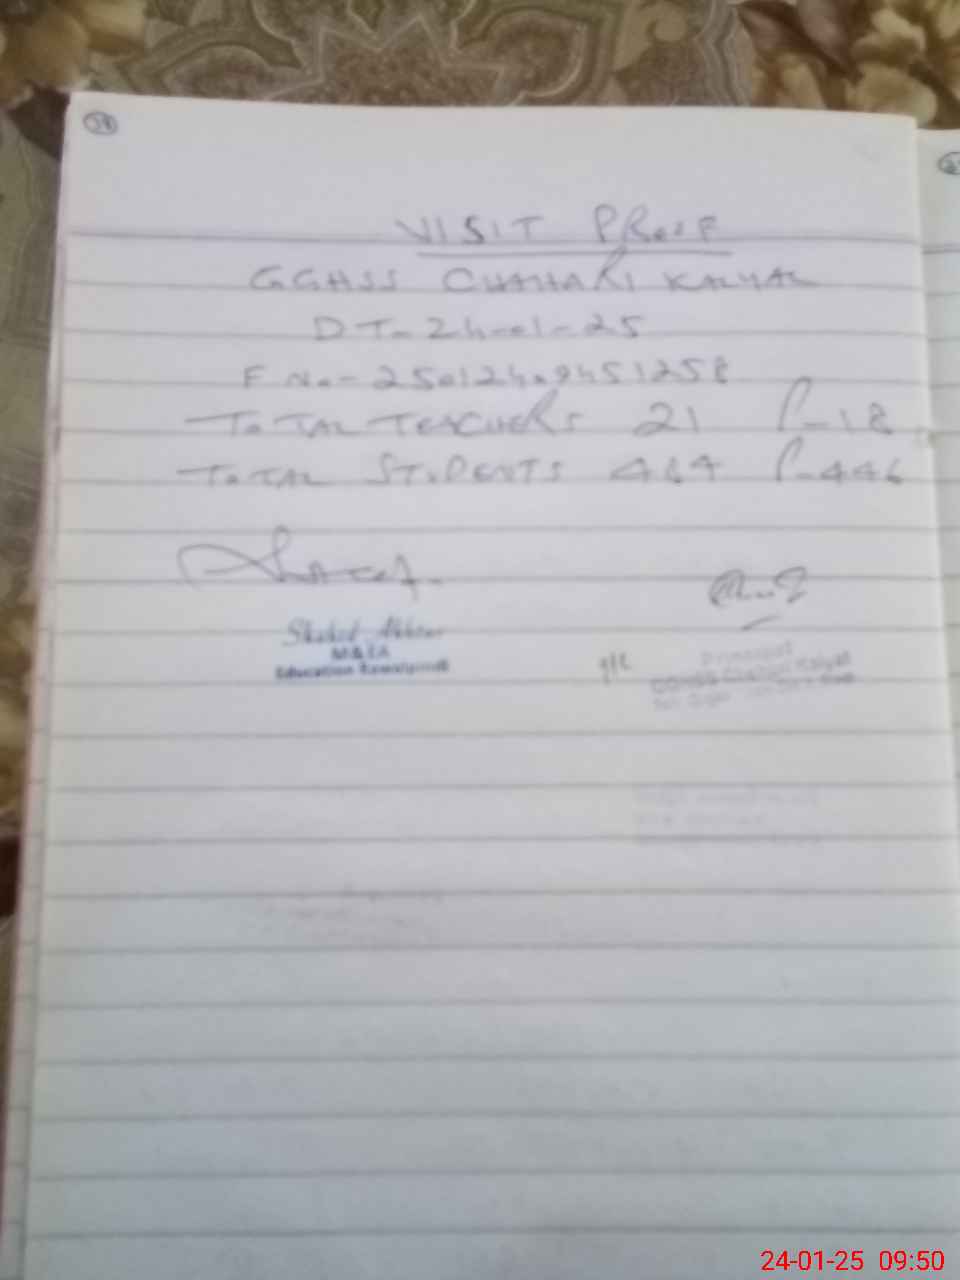 VISIT PROOF
GGHSS CHAHARI KALYAL
DT-24-01-25
F No.-25012409451258
TOTAL TEACHERS 21 P-18
TOTAL STUDENTS 464 P-446
Shahid Akhtar
M&EA
Education Rawalpindi
Principal
GGHSS Chahari Kalyal
24-01-25 09:50